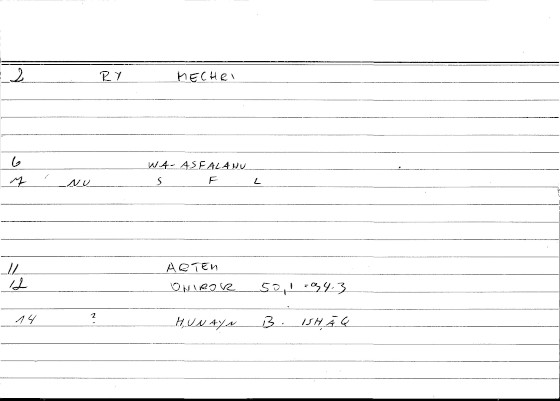 2 RY MECHRI
6 WA-ASFALANU
7 NU S F L
11 ARTEM
12 ONIROCR 50,1 - 94.3
14 ? ḤUNAYN B. ISḤĀQ